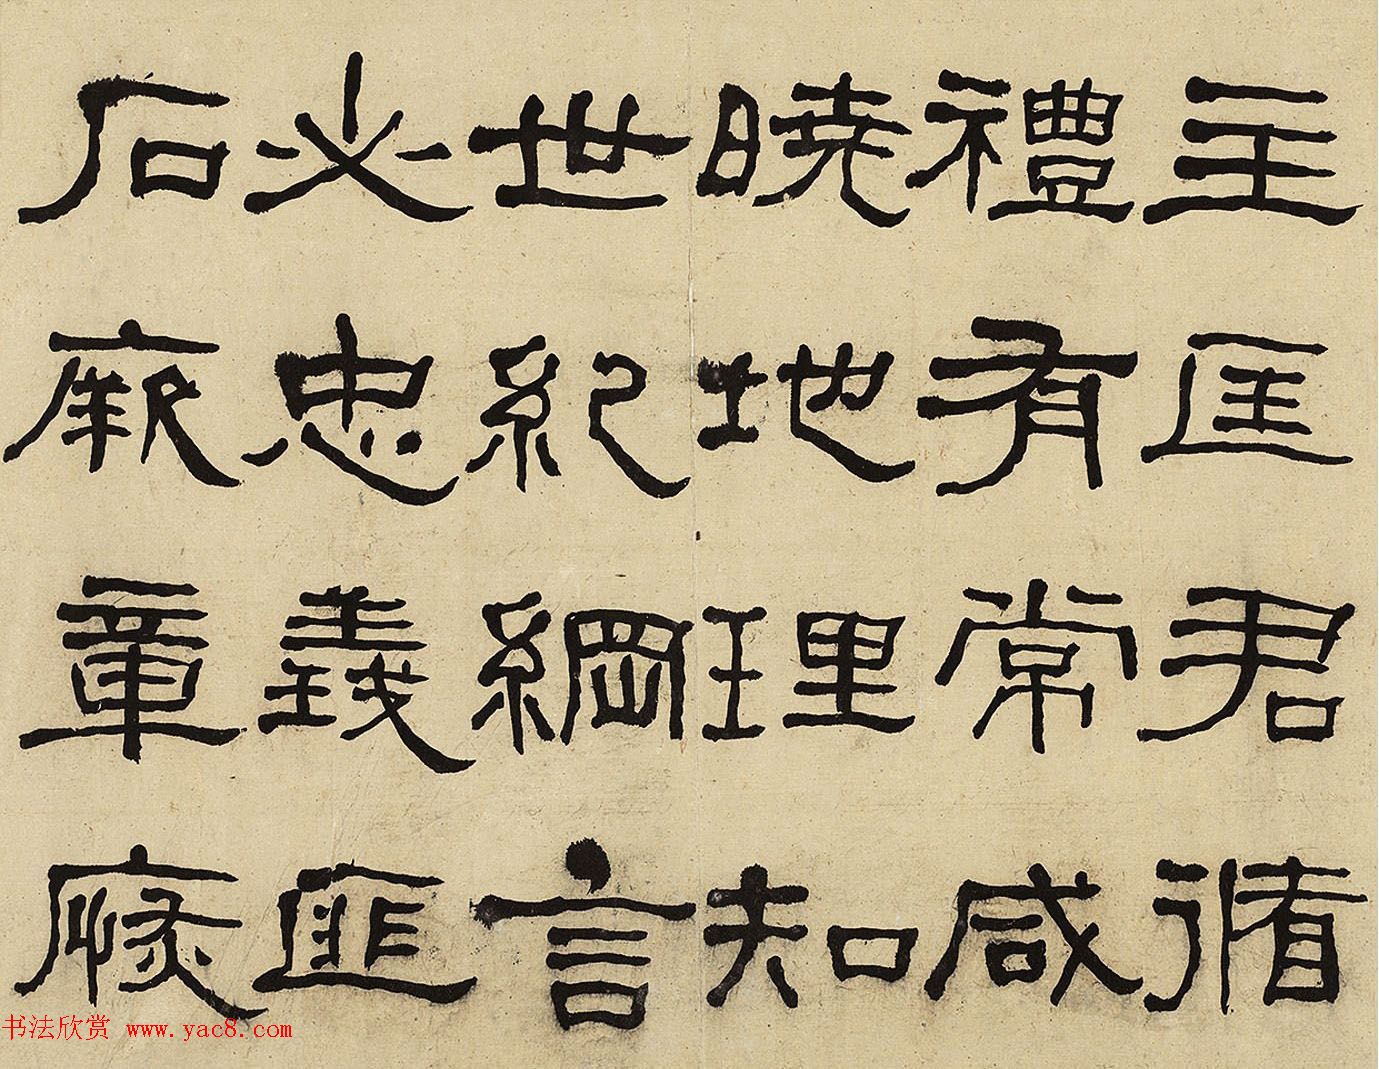 主匡君循
禮有常咸
曉地理知
世紀綱言
必忠義匪
石厥章恢
书法欣赏 www.yac8.com